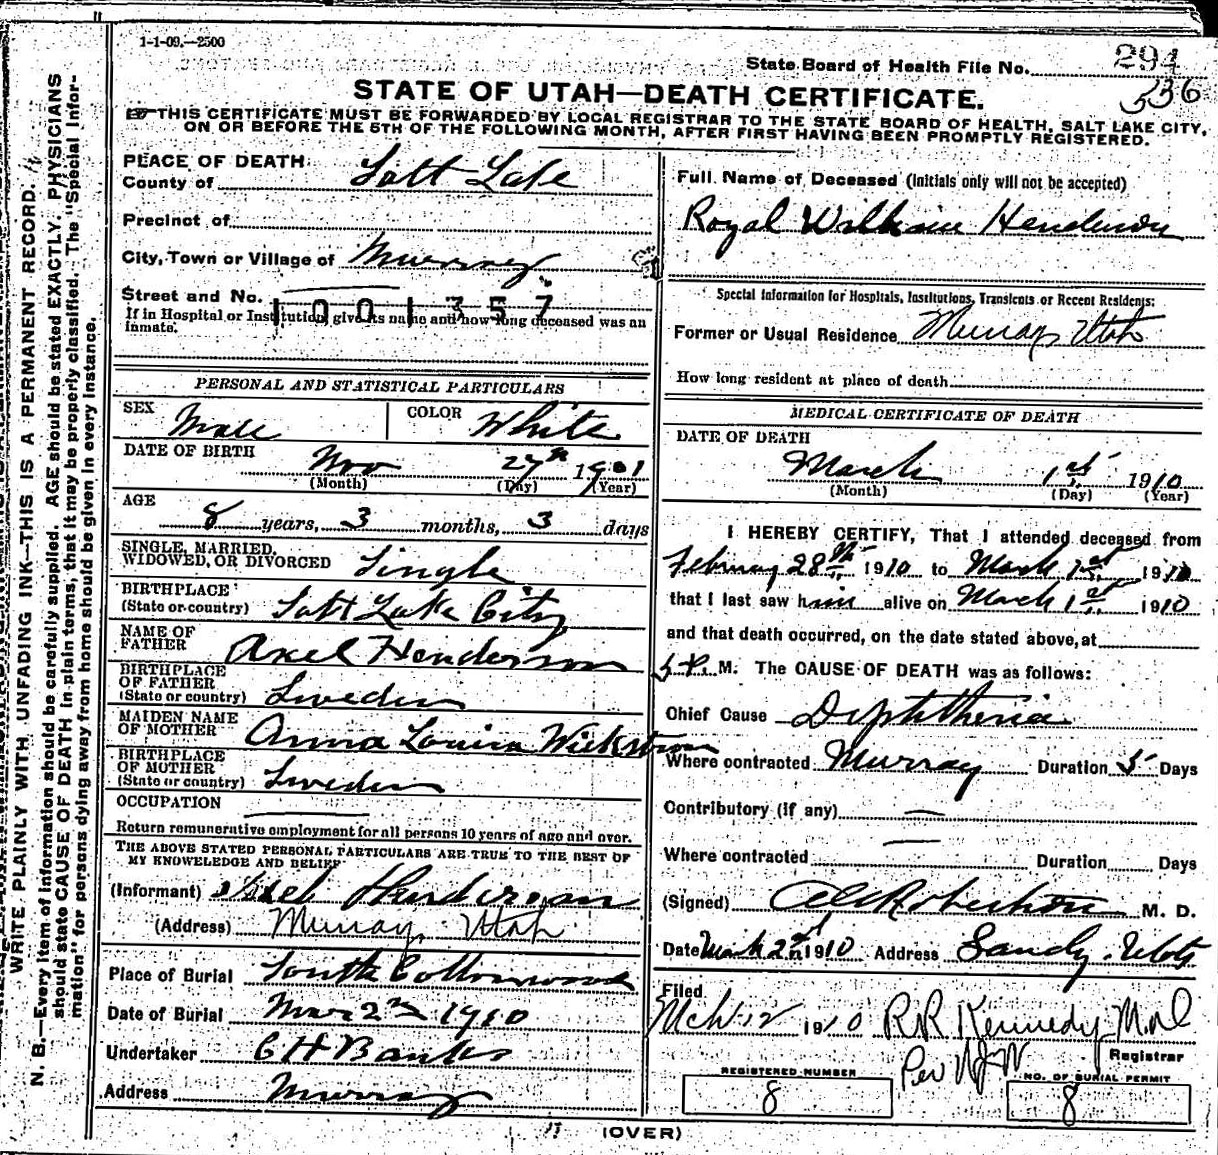 1-1-09.—2500
State Board of Health File No. 294
336
STATE OF UTAH—DEATH CERTIFICATE.
☞ THIS CERTIFICATE MUST BE FORWARDED BY LOCAL REGISTRAR TO THE STATE BOARD OF HEALTH, SALT LAKE CITY,
ON OR BEFORE THE 5TH OF THE FOLLOWING MONTH, AFTER FIRST HAVING BEEN PROMPTLY REGISTERED.
N. B.—Every item of information should be carefully supplied. AGE should be stated EXACTLY. PHYSICIANS
should state CAUSE OF DEATH in plain terms, that it may be properly classified. The "Special Infor-
mation" for persons dying away from home should be given in every instance.
WRITE PLAINLY WITH UNFADING INK—THIS IS A PERMANENT RECORD.
PLACE OF DEATH
County of Salt Lake
Precinct of
City, Town or Village of Murray
Street and No.
1001357
If in Hospital or Institution, give its name and how long deceased was an
inmate.
PERSONAL AND STATISTICAL PARTICULARS
SEX Male COLOR White
DATE OF BIRTH Nov 27th 1901
(Month) (Day) (Year)
AGE
8 years, 3 months, 3 days
SINGLE, MARRIED,
WIDOWED, OR DIVORCED Single
BIRTHPLACE
(State or country) Salt Lake City
NAME OF
FATHER Axel Henderson
BIRTHPLACE
OF FATHER
(State or country) Sweden
MAIDEN NAME
OF MOTHER Anna Louisa Wickstrom
BIRTHPLACE
OF MOTHER
(State or country) Sweden
OCCUPATION
Return remunerative employment for all persons 10 years of age and over.
THE ABOVE STATED PERSONAL PARTICULARS ARE TRUE TO THE BEST OF
MY KNOWELEDGE AND BELIEF
(Informant) Axel Henderson
(Address) Murray, Utah
Place of Burial South Cottonwood
Date of Burial Mar 2nd 1910
Undertaker C H Banks
Address Murray
Full Name of Deceased (Initials only will not be accepted)
Royal William Henderson
Special Information for Hospitals, Institutions, Transients or Recent Residents:
Former or Usual Residence Murray Utah
How long resident at place of death
MEDICAL CERTIFICATE OF DEATH
DATE OF DEATH
March 1st 1910
(Month) (Day) (Year)
I HEREBY CERTIFY, That I attended deceased from
February 28th 1910 to March 1st 1910
that I last saw him alive on March 1st 1910
and that death occurred, on the date stated above, at
P. M. The CAUSE OF DEATH was as follows:
Chief Cause Diphtheria
Where contracted Murray Duration 5 Days
Contributory (if any) —
Where contracted — Duration Days
(Signed) Robertson M. D.
Date March 2nd 1910 Address Sandy, Utah
Filed
Mch 12 1910 R R Kennedy M.D
Registrar
Per
REGISTERED NUMBER
8
NO. OF BURIAL PERMIT
8
(OVER)